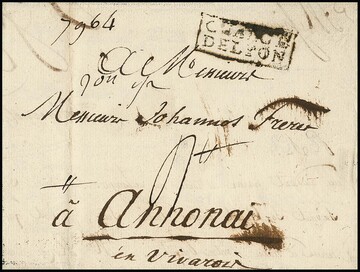 7964
CHARGÉ
DELYON
A Messieurs
Messieurs Johannot Freres
à Annonai
en Vivarois